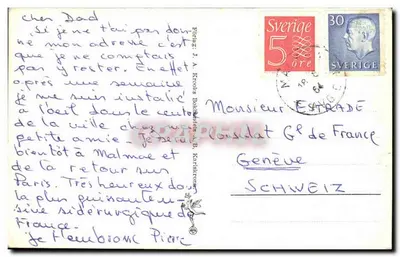 cher Dad
Si je ne t'ai pas donné
ne mon adresse c'est
que je ne comptais
pas y rester. En effet
après une semaine
je me suis installé
à l'oeil dans le centre
de la ville chez
petite amie - Je serai
bientôt à Malmoe et
de là retour sur
Paris. Très heureux
la plus puissante
sine sidérurgique de
France.
Je t'embrasse Pierre
Sverige
5
öre
30
SVERIGE
Monsieur ESTRADE
Consulat Gl de France
Genève
SCHWEIZ